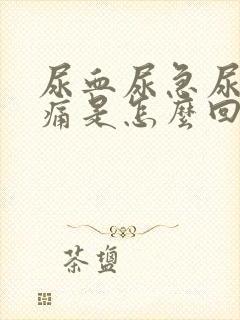 尿血尿急尿
痛是怎麼回
茶鹽